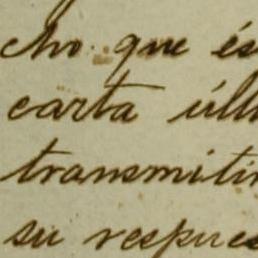 cho que és
carta últ
transmitir
su respues